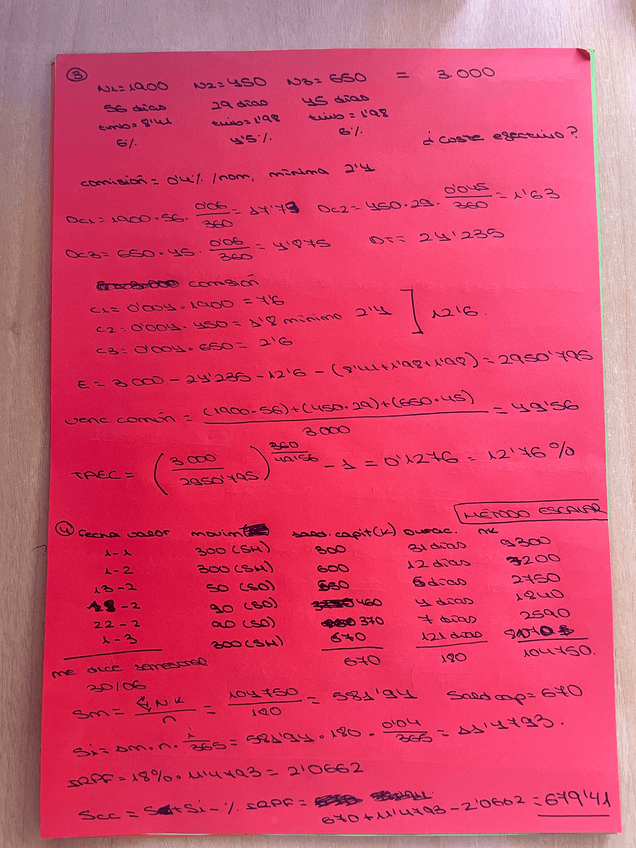 ③
N1=1900 N2=450 N3=650 = 3.000
56 días 29 días 45 días
timbre=8'41 timbre=1'98 timbre=1'98
6% 4'5% 6%
¿Coste efectivo?
comisión = 0'4% /nom, mínima 2'4
Dc1= 1900·56· 0'06/360 = 17'73 Dc2= 450·29· 0'045/360 = 1'63
Dc3= 650·45· 0'06/360 = 4'875 DT= 24'235
comisión
C1= 0'004·1900 = 7'6
C2= 0'004·450= 1'8 mínimo 2'4 ] 12'6.
C3= 0'004·650= 2'6
E = 3000 - 24'235 - 12'6 - (8'41+1'98+1'98) = 2950'795
Venc común = (1900·56)+(450·29)+(650·45) / 3.000 = 49'56
TAEC = (3.000 / 2950'795)^(360/49'56) - 1 = 0'1276 = 12'76%
MÉTODO ESCALAR
④ fecha valor movim sald. capit(k) durac. nk
1-1 300 (SH) 300 31 días 9300
1-2 300 (SH) 600 12 días 7200
13-2 50 (SD) 550 5 días 2750
18-2 90 (SD) 460 4 días 1840
22-2 90 (SD) 370 7 días 2590
1-3 300 (SH) 670 121 días 81070
670 180 104750.
me dice semestral
30/06
Sm = Σ N·K / n = 104750 / 180 = 581'94 Saldo cap = 670
Si = Sm·n· i/365 = 581'94·180· 0'04/365 = 11'4793.
IRPF = 18% · 11'4793 = 2'0662
Scc = S + Si - % IRPF = 670 + 11'4793 - 2'0662 = 679'41